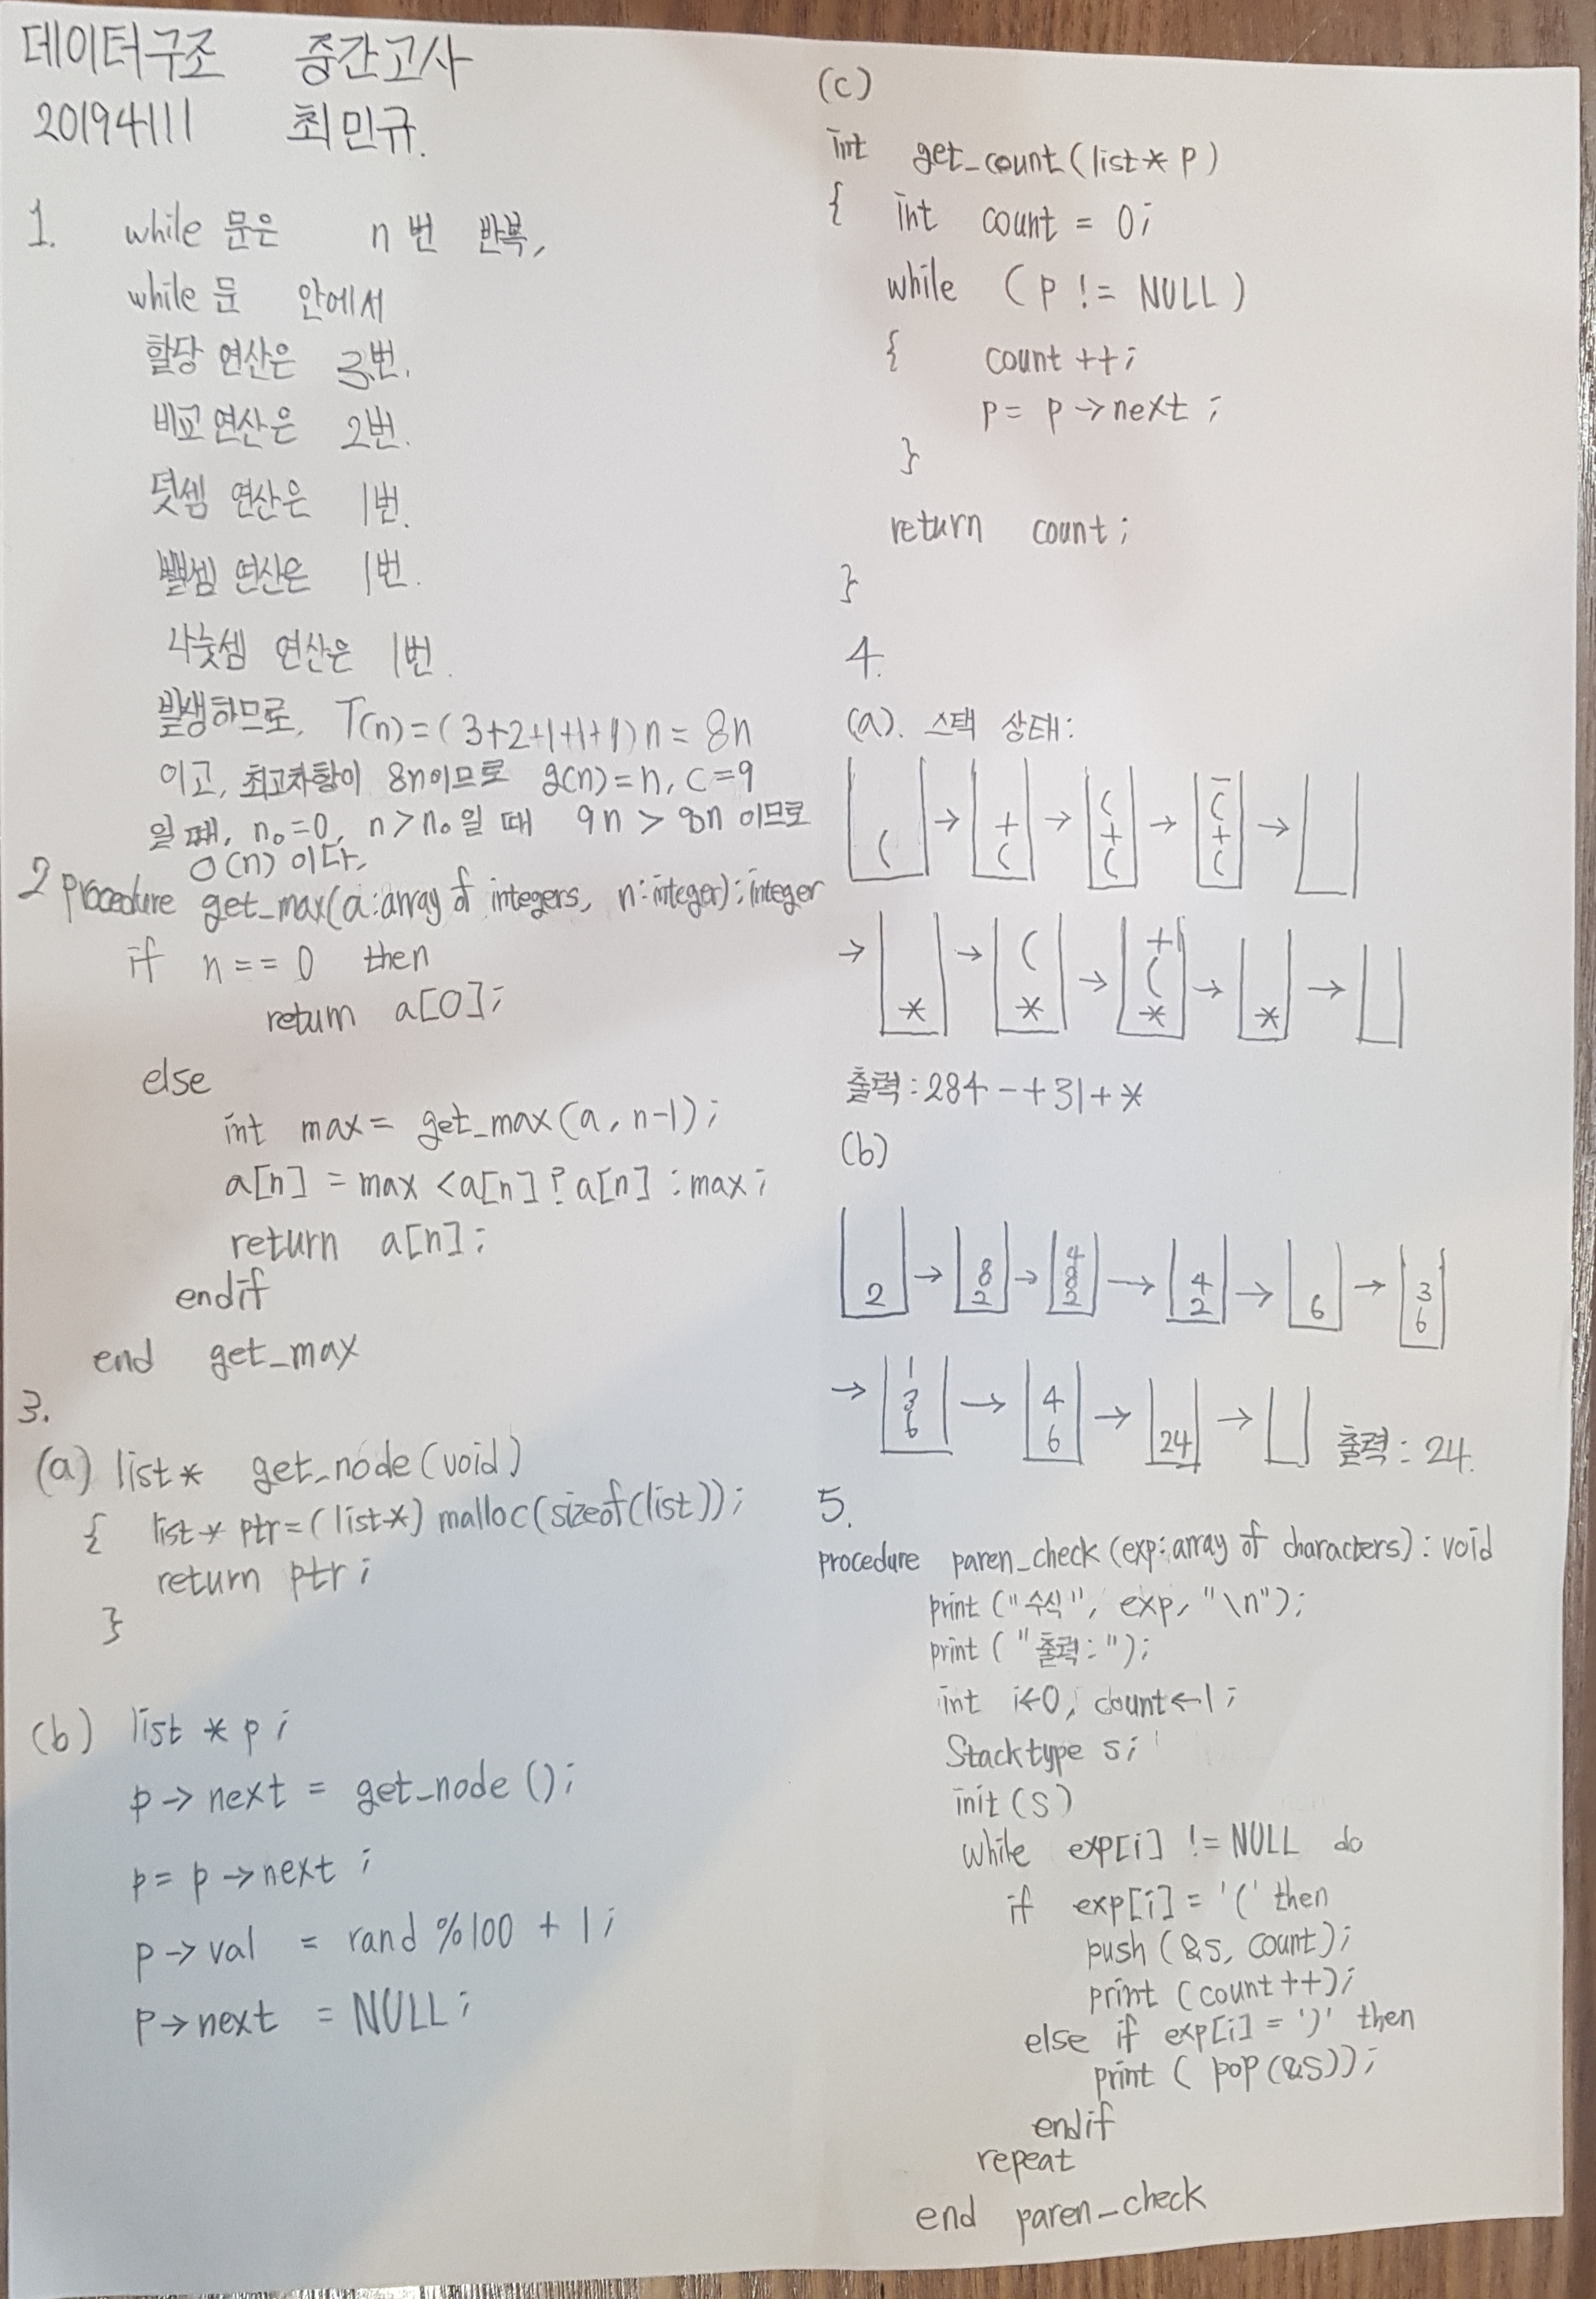 데이터구조 중간고사
20194111 최민규.
1. while 문은 n 번 반복,
while 문 안에서
할당 연산은 3번.
비교 연산은 2번.
덧셈 연산은 1번.
뺄셈 연산은 1번.
나눗셈 연산은 1번.
발생하므로, T(n)=(3+2+1+1+1)n = 8n
이고, 최고차항이 8n이므로 g(n)=n, c=9
일 때, n₀=0, n>n₀일 때 9n > 8n 이므로
O(n) 이다.
2 procedure get_max(a:array of integers, n:integer):integer
if n == 0 then
return a[0];
else
int max = get_max(a, n-1);
a[n] = max < a[n] ? a[n] : max;
return a[n];
endif
end get_max
3.
(a) list* get_node(void)
{ list* ptr=(list*) malloc(sizeof(list));
return ptr;
}
(b) list * p;
p→next = get_node();
p = p→next;
p→val = rand %100 + 1;
p→next = NULL;
(c)
int get_count(list* p)
{ int count = 0;
while (p != NULL)
{ count ++;
p = p→next;
}
return count;
}
4.
(a). 스택 상태:
( → + ( → ( + ( → - ( + ( →
→ * → ( * → + ( * → * →
출력 : 284-+31+*
(b)
2 → 8 2 → 4 8 2 → 4 2 → 6 → 3 6
→ 1 3 6 → 4 6 → 24 → 출력 : 24.
5.
procedure paren_check(exp:array of characters) : void
print ("수식", exp, "\n");
print ("출력:");
int i←0, count←1;
Stacktype s;
init(s)
while exp[i] != NULL do
if exp[i] = '(' then
push(&s, count);
print (count++);
else if exp[i] = ')' then
print ( pop(&s));
endif
repeat
end paren_check